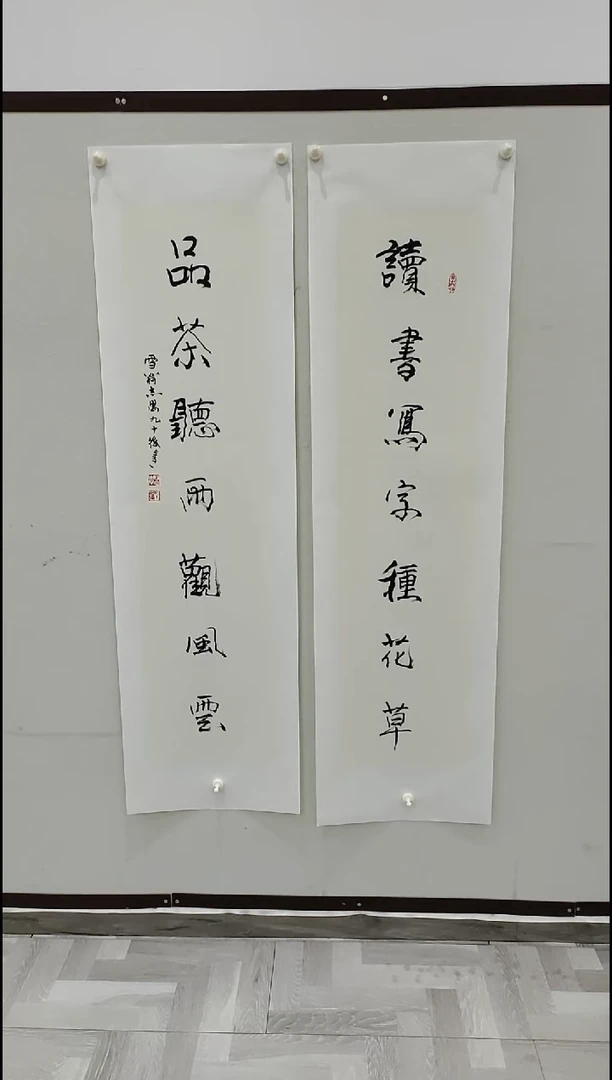 讀書寫字種花草
品茶聽雨觀風雲
九十後書